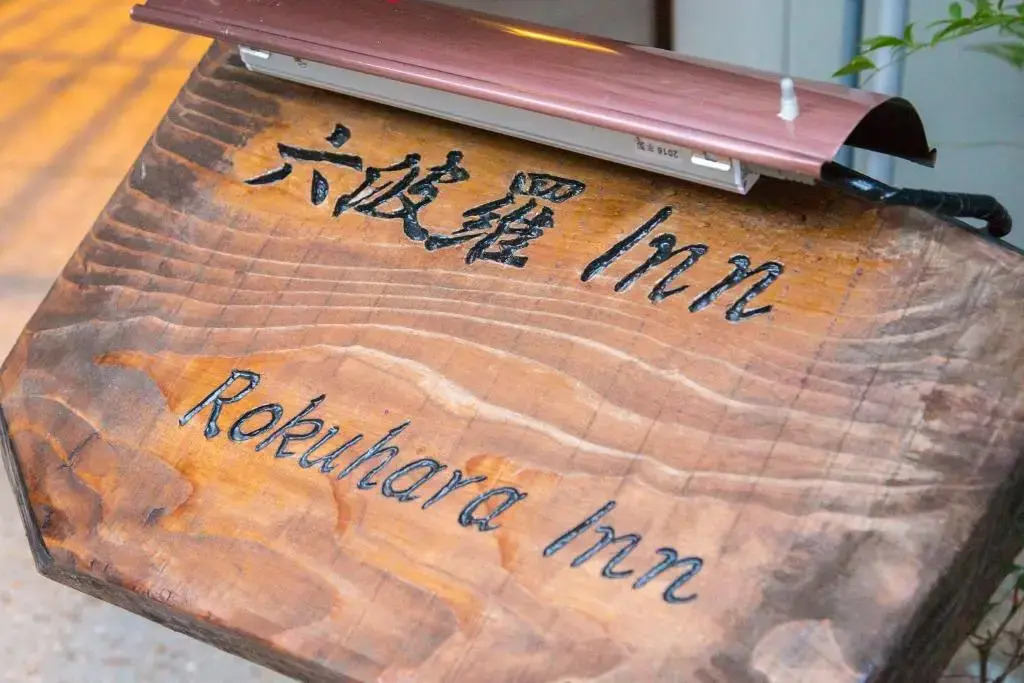 六波羅 Inn
Rokuhara Inn
2016 年製